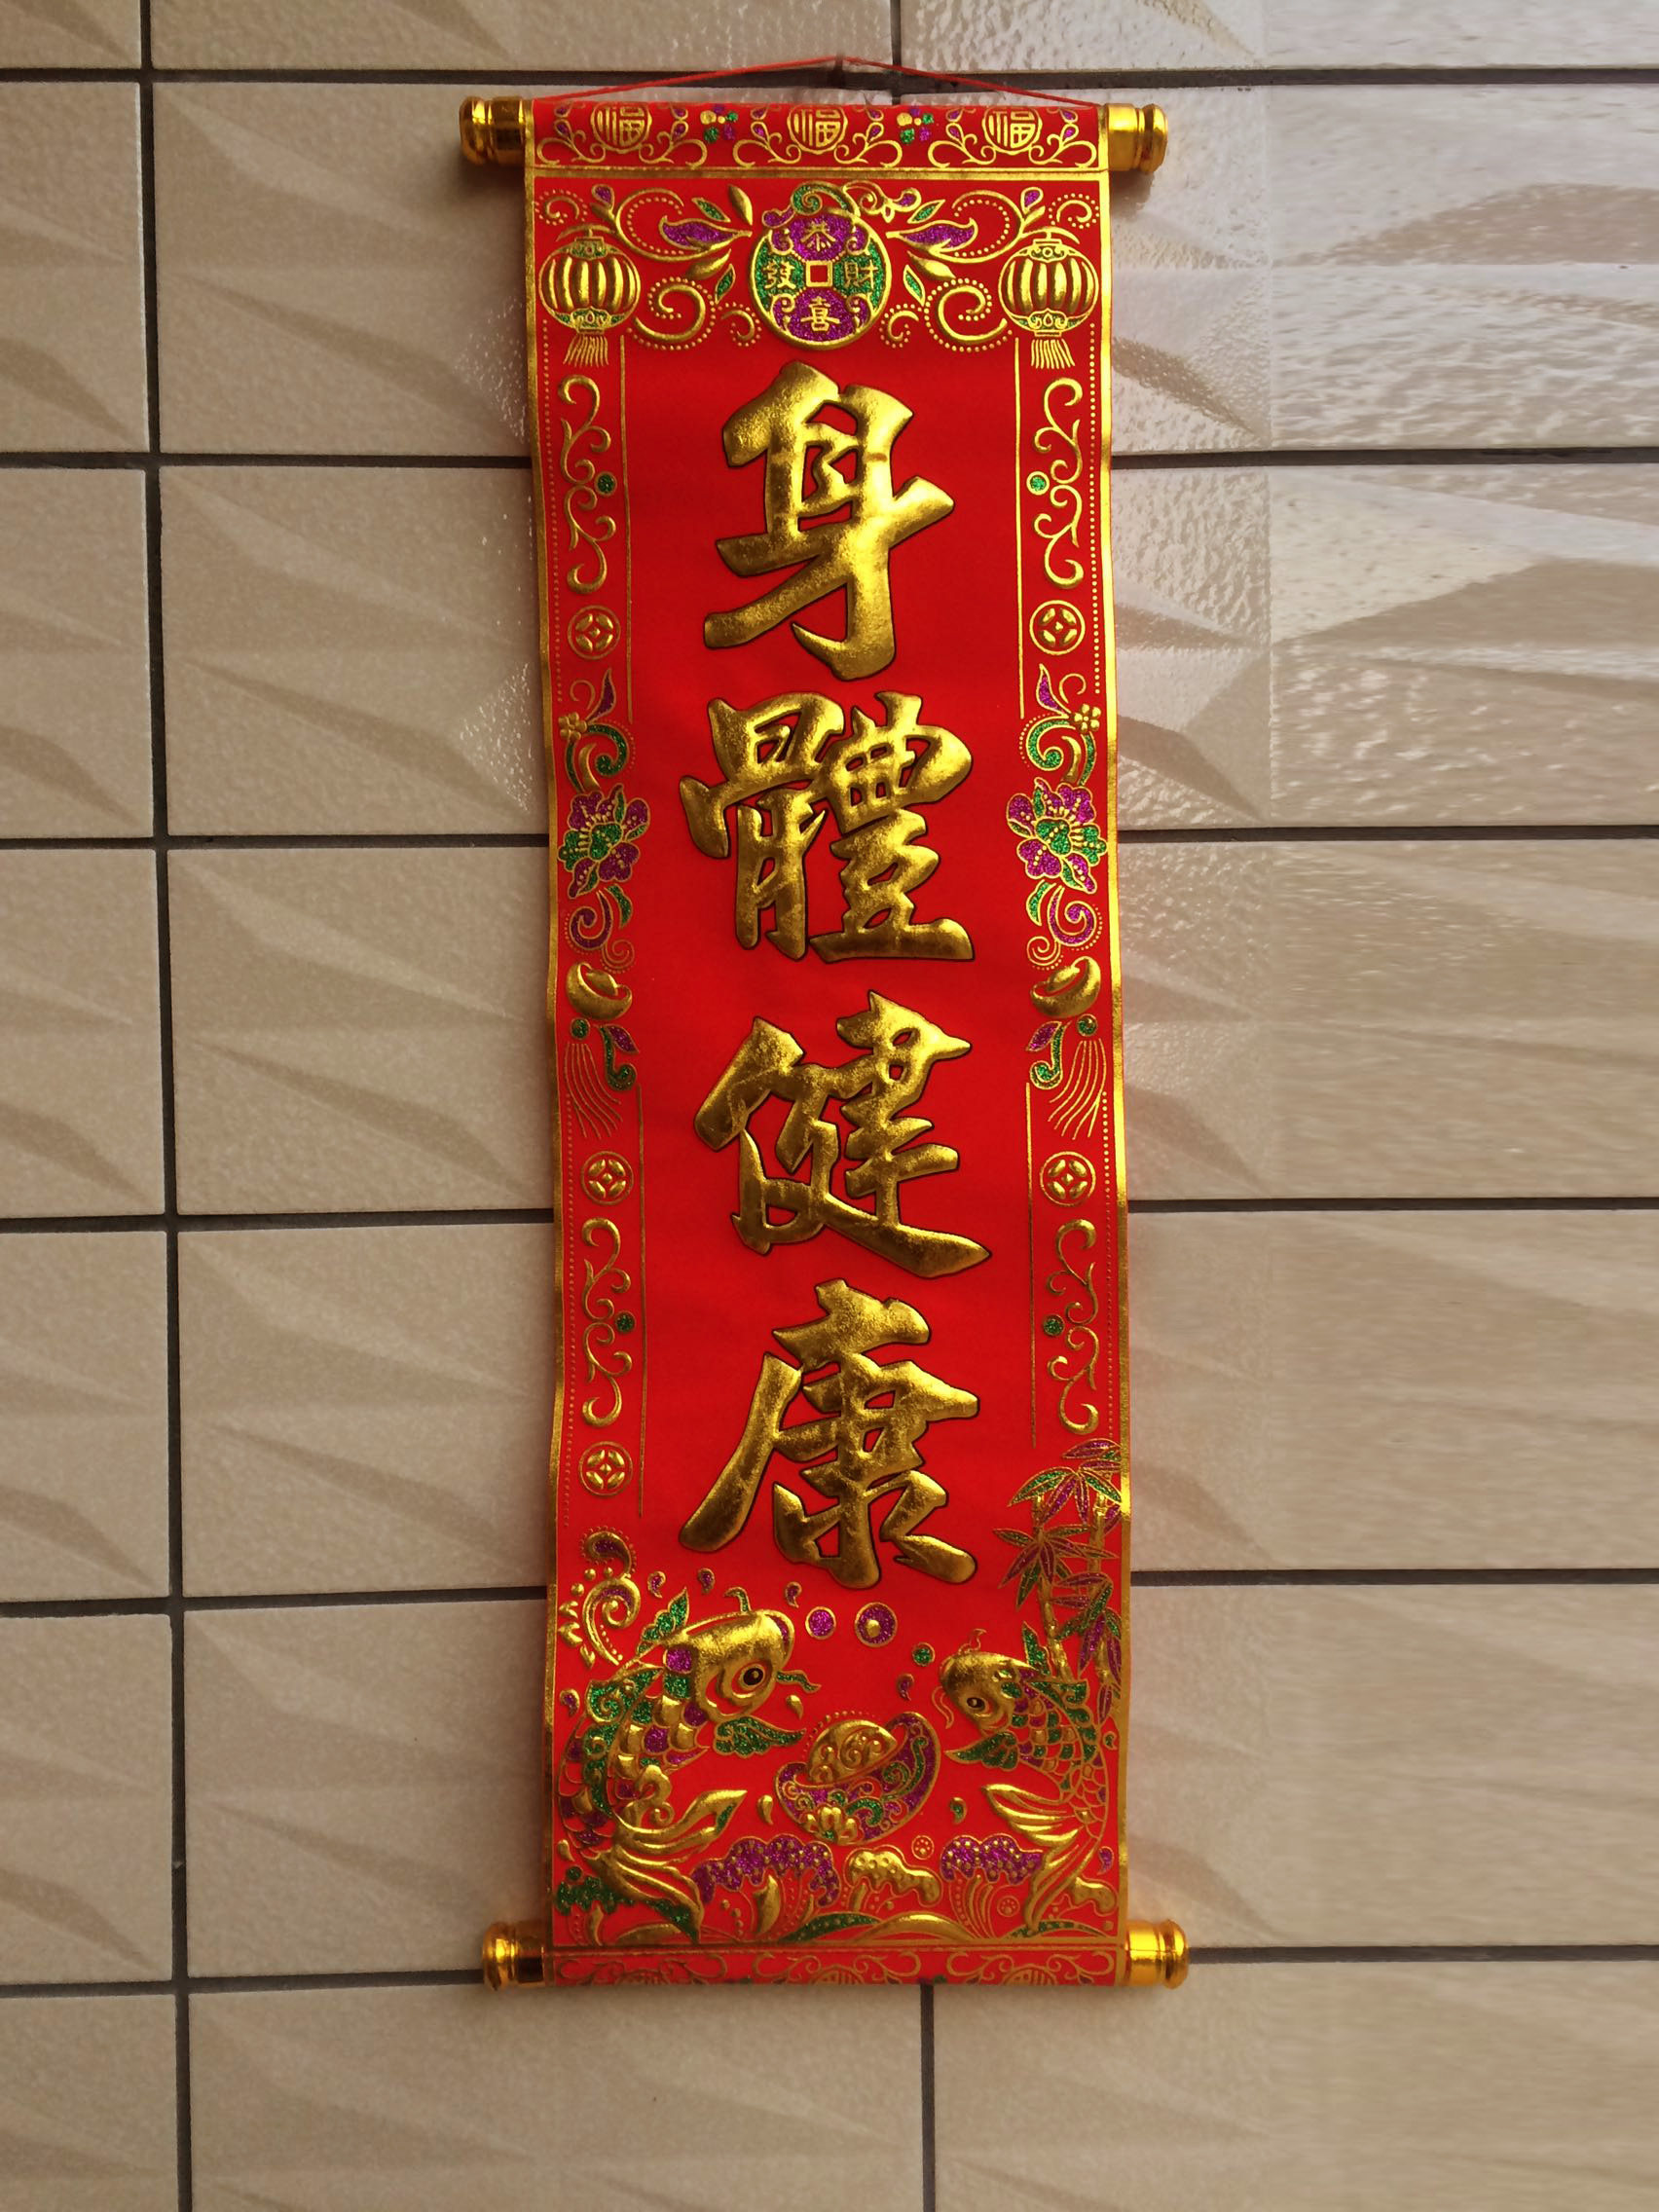 福 福 福
恭喜發財
身體健康